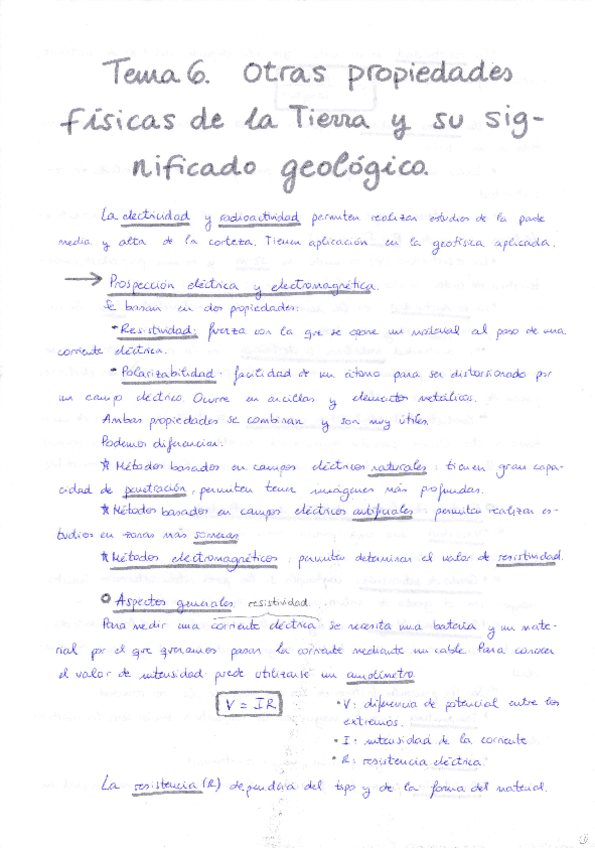 Tema 6. Otras propiedades
físicas de la Tierra y su sig-
nificado geológico.
La electricidad y radioactividad permiten realizar estudios de la parte
media y alta de la corteza. Tienen aplicación en la geofísica aplicada.
→ Prospección eléctrica y electromagnética.
Se basan en dos propiedades:
• Resistividad: fuerza con la que se opone un material al paso de una
corriente eléctrica.
• Polarizabilidad: facilidad de un átomo para ser distorsionado por
un campo eléctrico. Ocurre en arcillas y elementos metálicos.
Ambas propiedades se combinan y son muy útiles.
Podemos diferenciar:
★ Métodos basados en campos eléctricos naturales: tienen gran capa-
cidad de penetración, permiten tener imágenes más profundas.
★ Métodos basados en campos eléctricos artificiales: permiten realizar es-
tudios en zonas más someras
★ Métodos electromagnéticos: permiten determinar el valor de resistividad.
Aspectos generales resistividad.
Para medir una corriente eléctrica se necesita una batería y un mate-
rial por el que queramos pasar la corriente mediante un cable. Para conocer
el valor de intensidad puede utilizarse un amperímetro.
V = IR
• V: diferencia de potencial entre los
extremos.
• I: intensidad de la corriente
• R: resistencia eléctrica.
La resistencia (R) dependerá del tipo y de la forma del material.